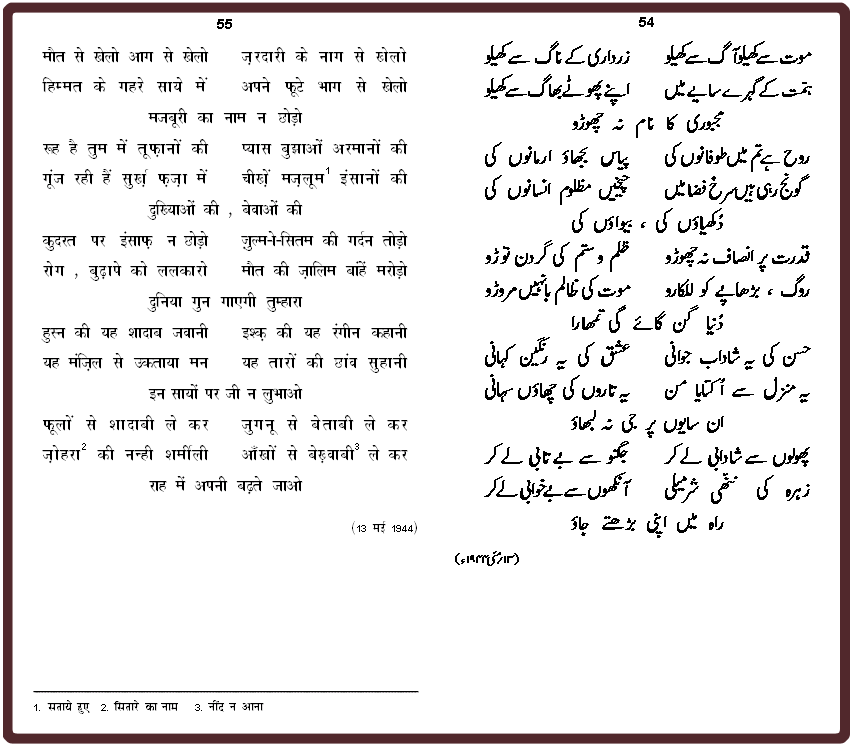 55
मौत से खेलो आग से खेलो ज़रदारी के नाग से खेलो
हिम्मत के गहरे साये में अपने फूटे भाग से खेलो
मजबूरी का नाम न छोड़ो
रूह है तुम में तूफ़ानों की प्यास बुझाओं अरमानों की
गूंज रही हैं सुर्ख़ फ़ज़ा में चीख़ें मज़्लूम1 इंसानों की
दुखियाओं की , बेवाओं की
क़ुदरत पर इंसाफ़ न छोड़ो ज़ुल्म-ो-सितम की गर्दन तोड़ो
रोग , बुढ़ापे को ललकारो मौत की ज़ालिम बांहें मरोड़ो
दुनिया गुन गाएगी तुम्हारा
हुस्न की यह शादाब जवानी इश्क़ की यह रंगीन कहानी
यह मंज़िल से उकताया मन यह तारों की छांव सुहानी
इन सायों पर जी न लुभाओ
फूलों से शादाबी ले कर जुगनू से बेताबी ले कर
ज़ोहरा2 की नन्ही शर्मीली आँखों से बेख़्वाबी3 ले कर
राह में अपनी बढ़ते जाओ
(13 मई 1944)
1. सताये हुए 2. सितारे का नाम 3. नींद न आना
54
موت سے کھیلو آگ سے کھیلو زرداری کے ناگ سے کھیلو
ہمت کے گہرے سایے میں اپنے پھوٹے بھاگ سے کھیلو
مجبوری کا نام نہ چھوڑو
روح ہے تم میں طوفانوں کی پیاس بجھاؤ ارمانوں کی
گونج رہی ہیں سرخ فضا میں چیخیں مظلوم انسانوں کی
دُکھیاؤں کی ، بیواؤں کی
قدرت پر انصاف نہ چھوڑو ظلم و ستم کی گردن توڑو
روگ ، بڑھاپے کو للکارو موت کی ظالم بانہیں مروڑو
دُنیا گن گائے گی تمھارا
حسن کی یہ شاداب جوانی عشق کی یہ رنگین کہانی
یہ منزل سے اُکتایا من یہ تاروں کی چھاؤں سہانی
ان سایوں پر جی نہ لبھاؤ
پھولوں سے شادابی لے کر جگنو سے بے تابی لے کر
زہرہ کی ننھی شرمیلی آنکھوں سے بے خوابی لے کر
راہ میں اپنی بڑھتے جاؤ
(۱۳؍مئی ۱۹۴۴ء)